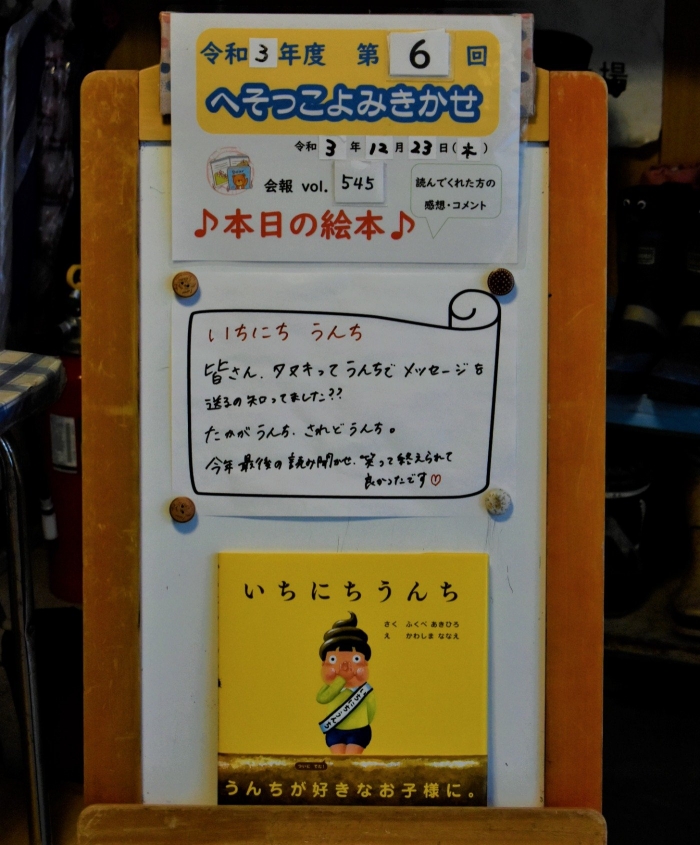 令和3年度 第6回
へそっこよみきかせ
令和3年12月23日(木)
会報 vol. 545
読んでくれた方の
感想・コメント
♪本日の絵本♪
いちにち うんち
皆さん、タヌキってうんちでメッセージを
送るの知ってました??
たかがうんち、されどうんち。
今年最後の読み聞かせ、笑って終えられて
良かったです♡
いちにちうんち
さく ふくべ あきひろ
え かわしま ななえ
いちにちうんち
うんちが好きなお子様に。
場